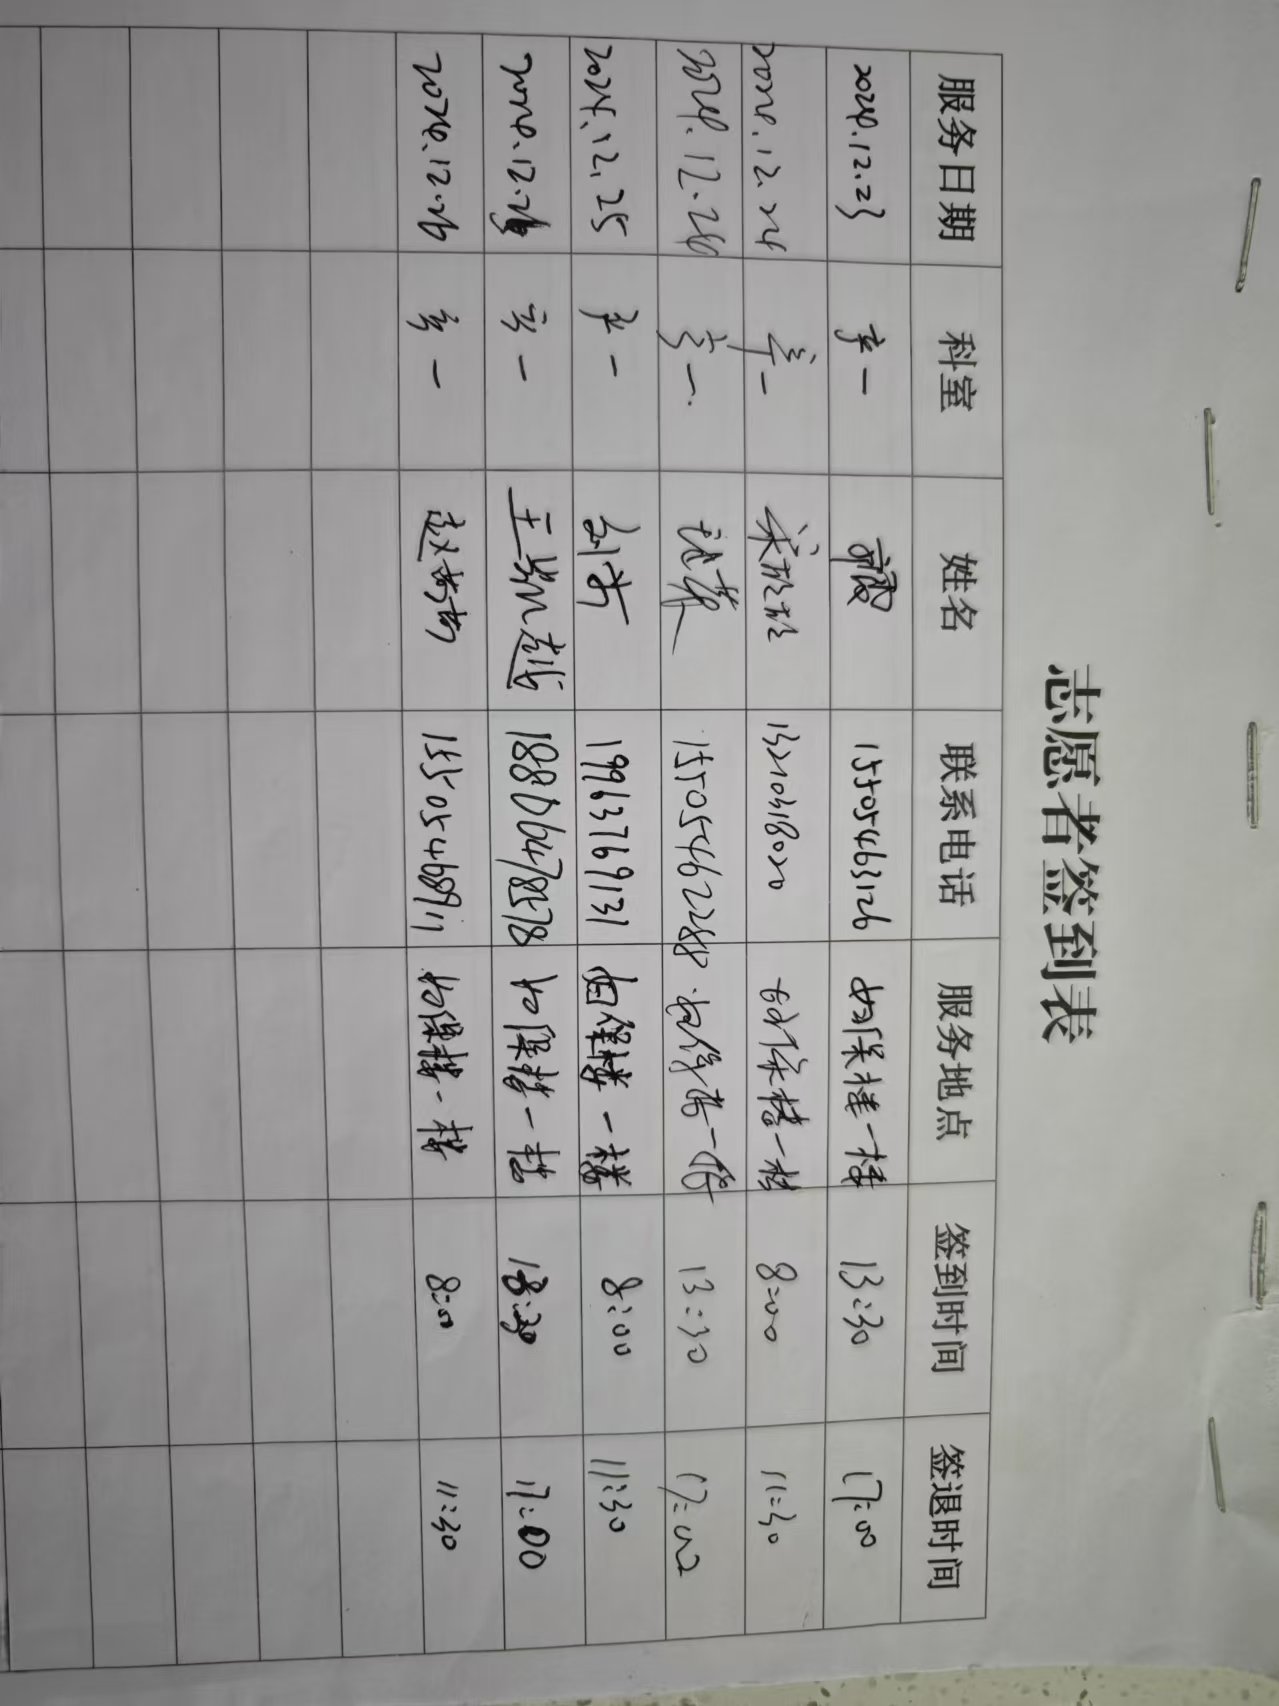 志愿者签到表
服务日期 科室 姓名 联系电话 服务地点 签到时间 签退时间
2024.12.23 产一 15505463126 妇保楼一楼 13:30 17:00
2024.12.24 产一 13210318020 妇保楼一楼 8:00 11:30
2024.12.24 产一. 15505462288 妇保楼一楼 13:30 17:00
2024.12.25 产一 刘芳 19963769131 妇保楼一楼 8:00 11:30
产一 18806478578 妇保楼一楼 13:30 17:00
2024.12.26 产一 15505468911 妇保楼一楼 8:00 11:30